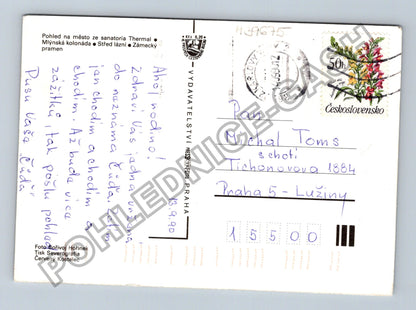 Pohled na město ze sanatoria Thermal •
Mlýnská kolonáda • Střed lázní • Zámecký
pramen
Ahoj rodino!
Zdraví Vás jedna
do neznáma Čúďa. Jen
jen chodím a chodím a
chodím. Až bude více
zážitků, tak pošlu pohled
Pusu Vaše Čúďa
13.9.90
Foto Bořivoj Hořínek
Tisk Severografia
Červený Kostelec
VYDAVATELSTVÍ
PRAHA
50h
Československo
Pan
Michal Toms
s chotí
Tichonovova 1884
Praha 5 - Lužiny
15500
POHLEDNICE-CASH